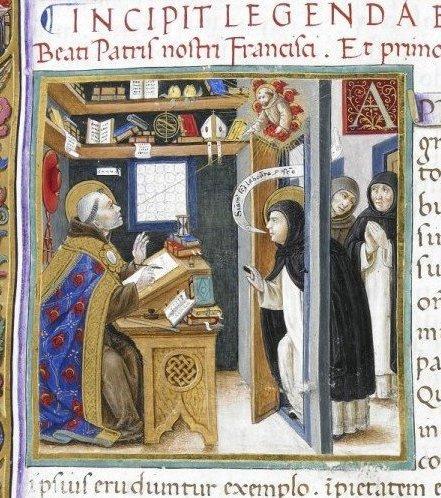 INCIPIT LEGENDA
Beati Patris nostri Francisci . Et primo
A
gr
to
bu
sin
su
or
m
pa
Qu
in
co
ipsius erudiuntur exemplo. īpietatem e